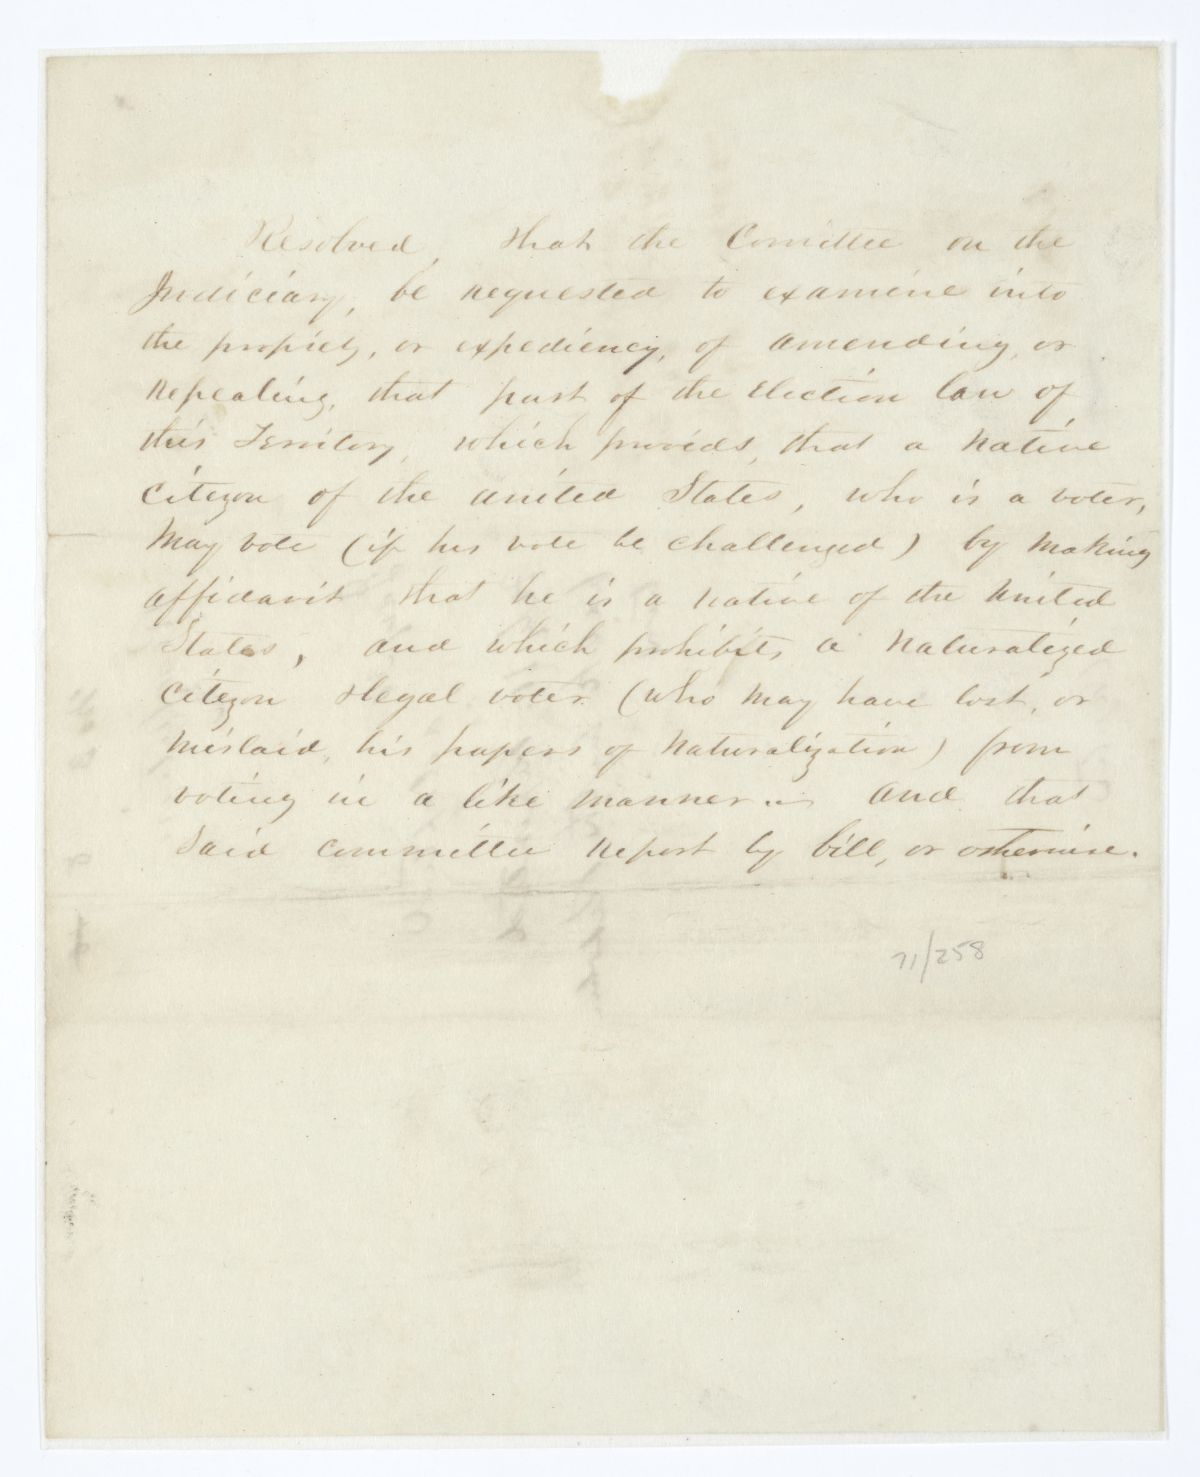 Resolved, that the Comittee on the
Judiciary, be requested to examine into
the propriety, or expediency, of amending, or
repealing, that part of the Election law of
this Territory, which provids, that a native
Citezon of the united States, who is a voter,
May vote (if his vote be challenged) by making
affidavit that he is a native of the united
States, and which prohibits a naturalized
Citezon & legal voter (who may have lost, or
mislaid, his papers of naturalization) from
voting in a like manner. And that
said committee report by bill, or otherwise.
71/258